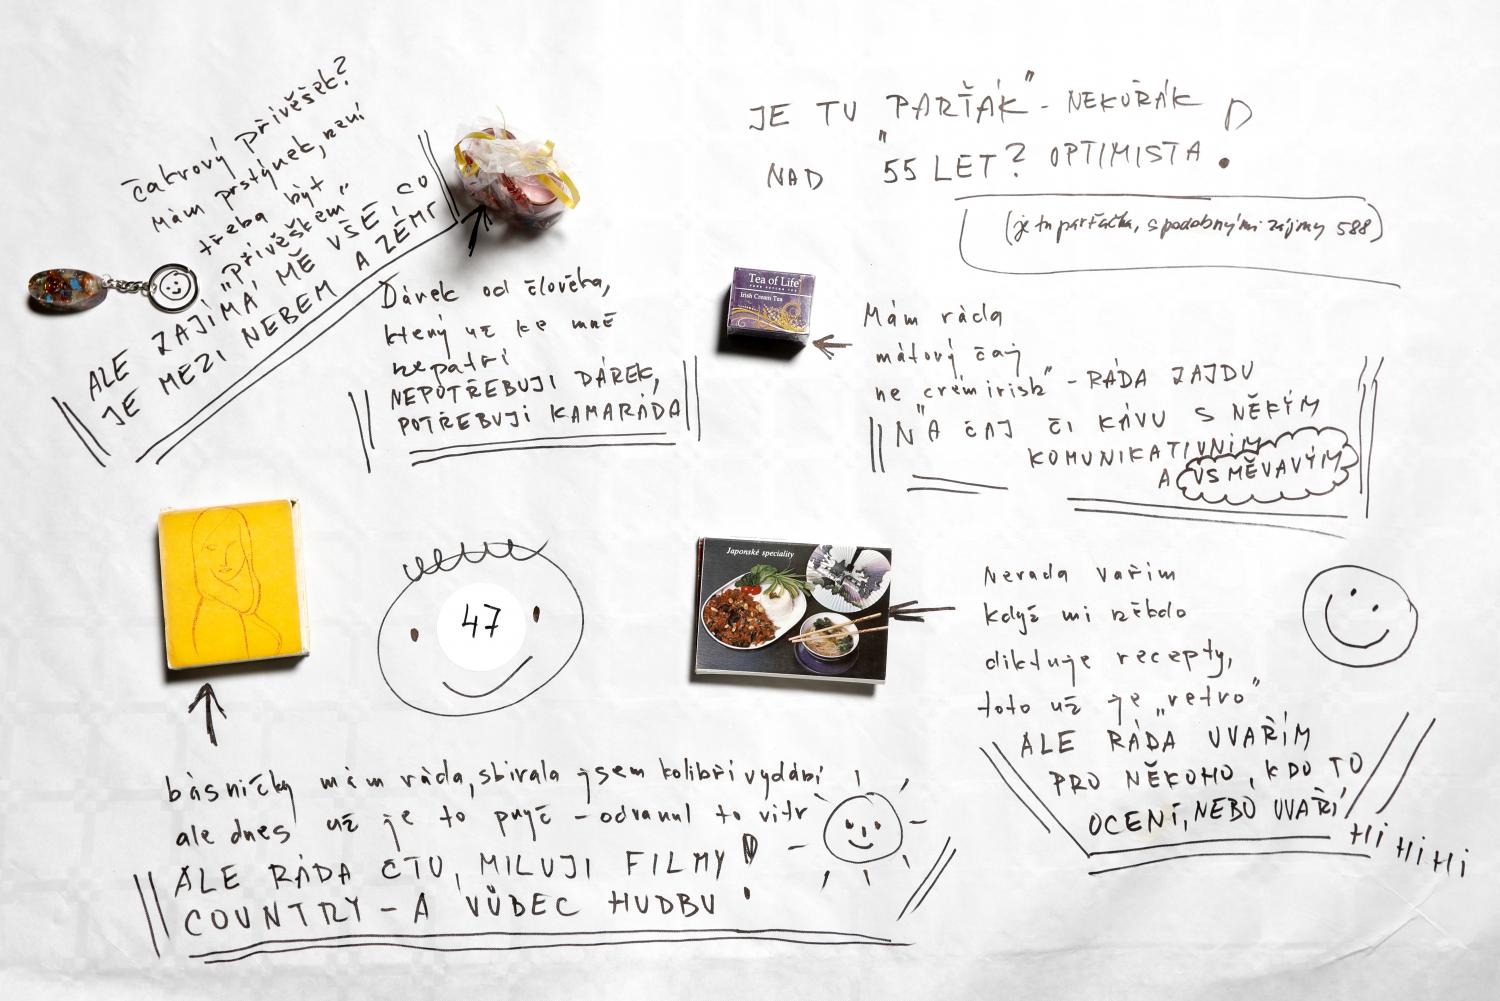 čakrový přívěšek?
mám prstýnek, není
třeba být
„přívěškem"
ALE ZAJÍMÁ MĚ VŠE, CO
JE MEZI NEBEM A ZEMÍ
JE TU „PARŤÁK" - NEKUŘÁK
NAD 55 LET? OPTIMISTA.
(je tu parťačka, s podobnými zájmy 588)
Dárek od člověka,
který už ke mně
nepatří
NEPOTŘEBUJI DÁREK,
POTŘEBUJI KAMARÁDA
Tea of Life
PURE CEYLON TEA
Irish Cream Tea
Mám ráda
mátový čaj
ne „crém irish" - RÁDA ZAJDU
NA ČAJ ČI KÁVU S NĚKÝM
KOMUNIKATIVNÍM
A USMĚVAVÝM
47
Japonské speciality
Nerada vařím
když mi někdo
diktuje recepty,
toto už je „retro"
ALE RÁDA UVAŘÍM
PRO NĚKOHO, KDO TO
OCENÍ, NEBO UVAŘÍ
Hi Hi Hi
básničky mám ráda, sbírala jsem kolibří vydání
ale dnes už je to pryč - odvanul to vítr
ALE RÁDA ČTU, MILUJI FILMY
COUNTRY - A VŮBEC HUDBU!